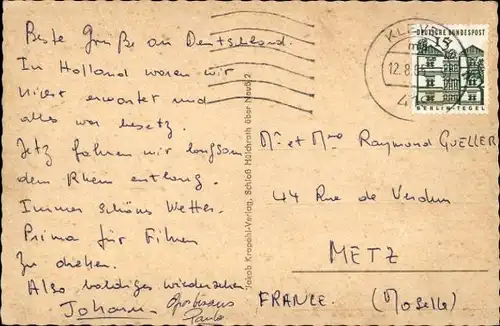 Beste Grüße an Deutschland.
In Holland waren wir
nicht erwartet und
alles war besetz.
Jetz fahren wir langsam
dem Rhein entlang.
Immer schöns Wetter.
Prima für Filmen
zu drehen.
Also baldiges wiedersehen
Johann
Jakob Krapohl-Verlag, Schloß Hülchrath über Neuß 2
KLEVE
12.8.6
DEUTSCHE BUNDESPOST
15
BERLIN-TEGEL
Mr et Mme Raymond GUELLER
44 Rue de Verdun
METZ
FRANCE. (Moselle)